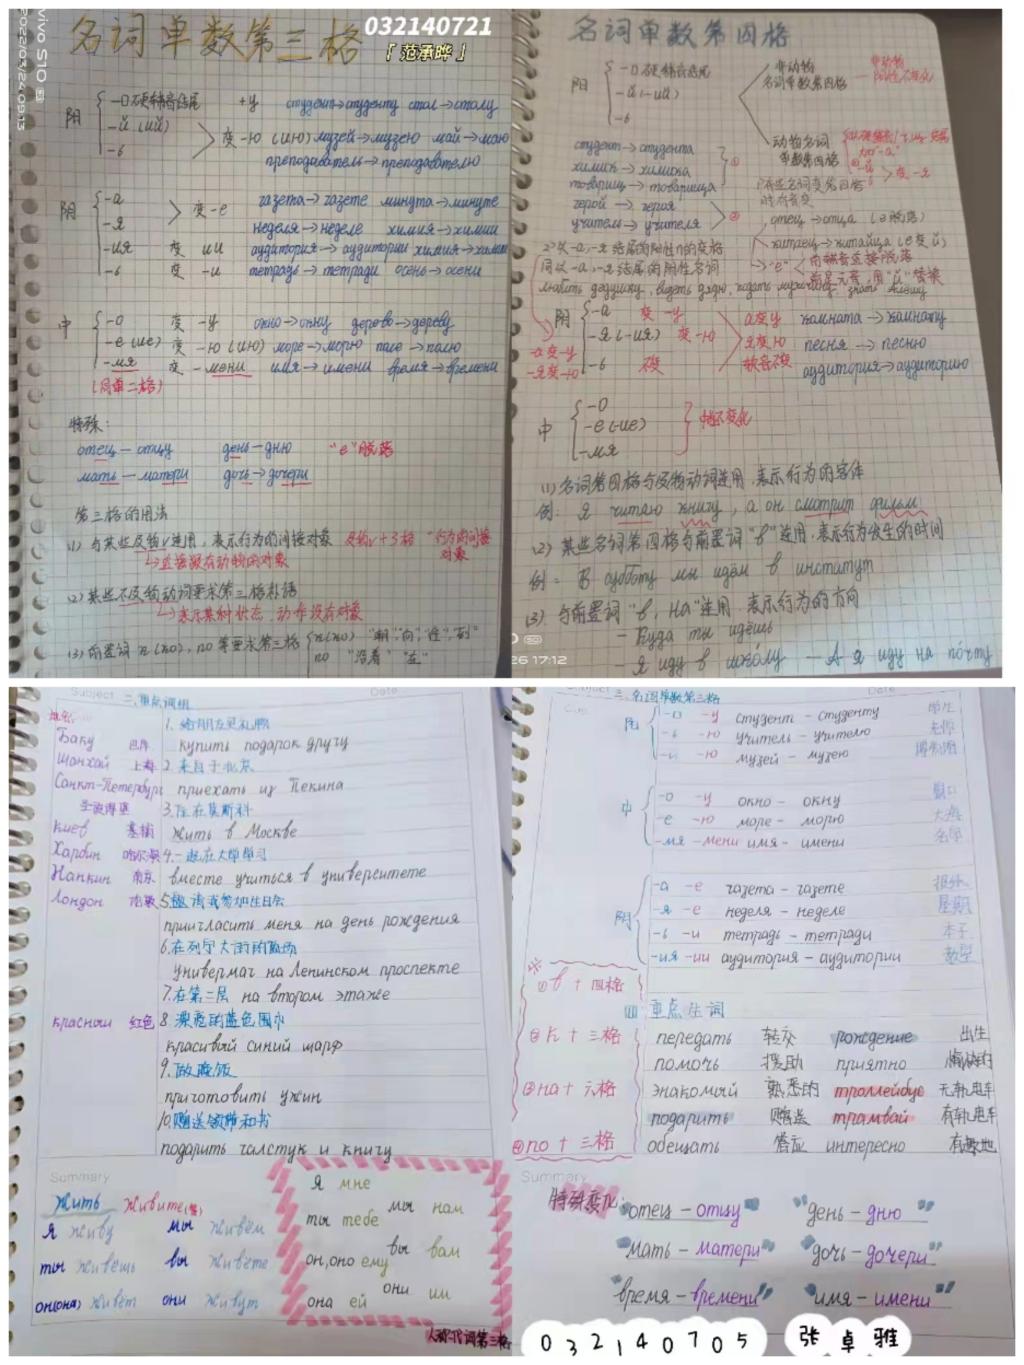 名词单数第三格
032140721
「范承晔」
阳 -0硬辅音结尾 +у студент→студенту стол→столу
-й (ий)
-ь
变-ю (ию) музей→музею май→маю
преподаватель→преподавателю
阴 -а
-я
变-е газета→газете минута→минуте
неделя→неделе химия→химии
-ия 变 ии аудитория→аудитории химия→химии
-ь 变 -и тетрадь→тетради осень→осени
中 -о 变 -у окно→окну дерево→дереву
-е (ие) 变 -ю (ию) море→морю поле→полю
-мя 变 -мени имя→имени время→времени
(同单二格)
特殊:
отец—отцу день—дню "е"脱落
мать—матери дочь→дочери
第三格的用法
(1) 与某些及物v连用,表示行为的间接对象 及物v+3格 "行为的间接对象
(2) 某些不及物动词要求第三格补语
→表示某种状态,动作没有对象
(3) 前置词 к (ко), по 等要求第三格
к (ко) "朝","向","往","到"
по "沿着" "在"
名词单数第四格
阳 -0硬辅音结尾
-й (-ий)
-ь
非动物
名词单数第四格
动物名词
单数第四格
студент→студента
химик→химика
товарищ→товарища
герой→героя
учитель→учителя
отец→отца (е脱落)
китаец→китайца (е变й)
同以-а,-я结尾的阴性名词
阴 -а 变 -у
-я (-ия) 变 -ю
-ь 不变
-а变-у
-я变-ю
а变у комната→комнату
я变ю песня→песню
аудитория→аудиторию
中 -о
-е (-ие)
-мя
中性不变化
(1) 名词第四格与及物动词连用,表示行为的客体
例: Я читаю книгу, а он смотрит фильм
(2) 某些名词第四格与前置词"в"连用,表示行为发生的时间
例: В субботу мы идём в институт
(3) 与前置词"в, на"连用,表示行为的方向
— Куда ты идёшь
— Я иду в школу — А я иду на почту
二.重点词组
地名:
Баку 巴库
Шанхай 上海
Санкт-Петербург
圣彼得堡
Киев 基辅
Харбин 哈尔滨
Нанкин 南京
Лондон 伦敦
красный 红色
1. 给朋友买礼物
купить подарок другу
2. 来自于北京
приехать из Пекина
3. 住在莫斯科
жить в Москве
4. 一起在大学学习
вместе учиться в университете
5. 邀请我参加生日会
пригласить меня на день рождения
6. 在列宁大街的商场
универмаг на Ленинском проспекте
7. 在第二层 на втором этаже
8. 漂亮的蓝色围巾
красивый синий шарф
9. 做晚饭
приготовить ужин
10. 赠送领带和书
подарить галстук и книгу
Summary
жить живите
я живу мы живём
ты живёшь вы живёте
он(она) живёт они живут
я мне
мы нам
ты тебе
вы вам
он,оно ему
они им
она ей
人称代词第三格
三.名词单数第三格
阳 -о -у студент - студенту 学生
-ь -ю учитель - учителю 老师
-й -ю музей - музею 博物馆
中 -о -у окно - окну 窗口
-е -ю море - морю 大海
-мя -мени имя - имени 名字
阴 -а -е газета - газете 报纸
-я -е неделя - неделе 星期
-ь -и тетрадь - тетради 本子
-ия -ии аудитория - аудитории 教室
①в + 四格
②к + 三格
③на + 六格
④по + 三格
四 重点生词
передать 转交 рождение 出生
помочь 援助 приятно 愉快的
знакомый 熟悉的 троллейбус 无轨电车
подарить 赠送 трамвай 有轨电车
обещать 答应 интересно 有趣地
Summary
特殊变化:
отец - отцу день - дню
мать - матери дочь - дочери
время - времени имя - имени
032140705 张卓雅